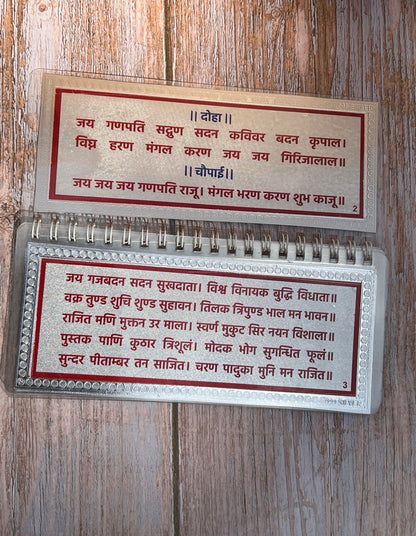 ॥ दोहा ॥
जय गणपति सद्गुण सदन कविवर बदन कृपाल।
विघ्न हरण मंगल करण जय जय गिरिजालाल॥
॥ चौपाई ॥
जय जय जय गणपति राजू। मंगल भरण करण शुभ काजू॥
2
जय गजबदन सदन सुखदाता। विश्व विनायक बुद्धि विधाता॥
वक्र तुण्ड शुचि शुण्ड सुहावन। तिलक त्रिपुण्ड भाल मन भावन॥
राजित मणि मुक्तन उर माला। स्वर्ण मुकुट सिर नयन विशाला॥
पुस्तक पाणि कुठार त्रिशूलं। मोदक भोग सुगन्धित फूलं॥
सुन्दर पीताम्बर तन साजित। चरण पादुका मुनि मन राजित॥
3